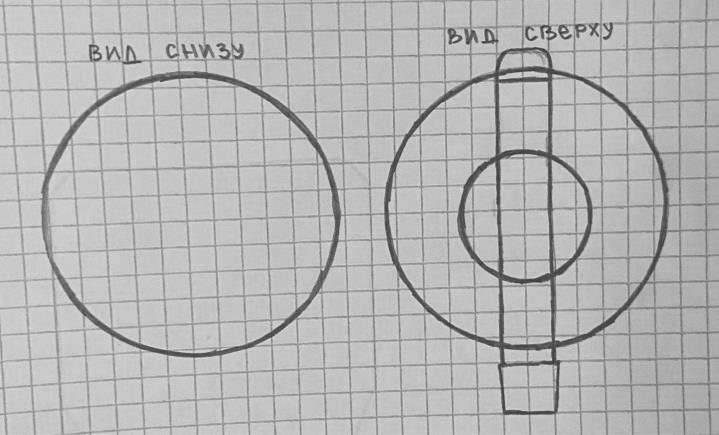 ВИД СНИЗУ
ВИД СВЕРХУ